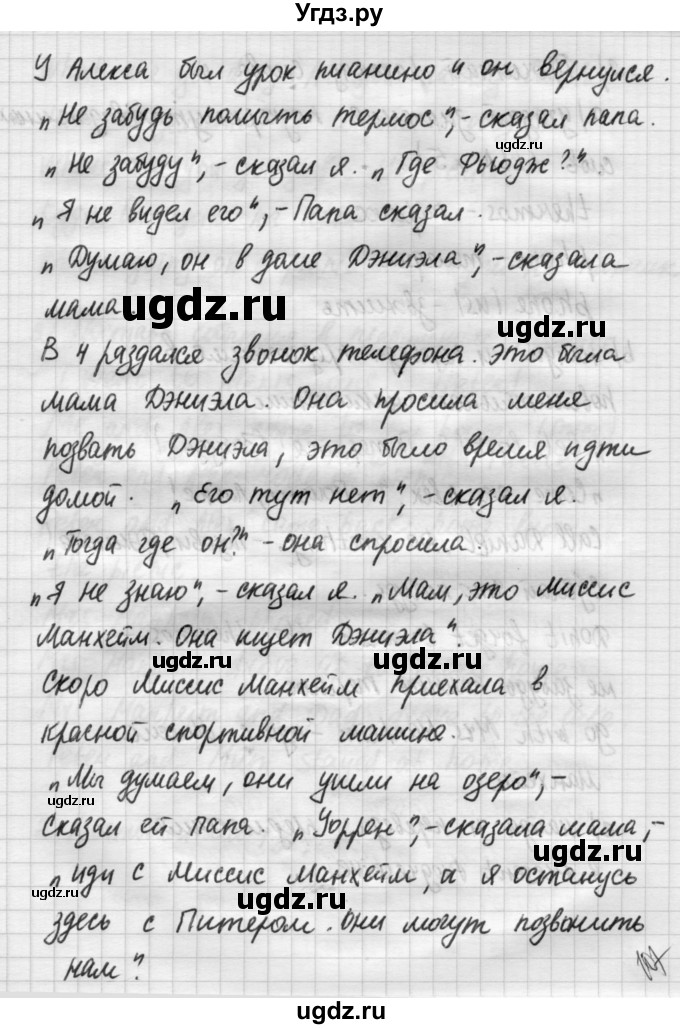 Угдз.ру
У Алекса был урок пианино и он вернулся.
„Не забудь помыть термос", - сказал папа.
„Не забуду", - сказал я. „Где Фьюдж?".
„Я не видел его", - Папа сказал.
„Думаю, он в доме Дэниэла", - сказала
мама.
ugdz.ru ugdz.ru
В 4 раздался звонок телефона. Это была
мама Дэниэла. Она просила меня
позвать Дэниэла, это было время идти
домой. „Его тут нет", - сказал я.
„Тогда где он?" - она спросила.
„Я не знаю", - сказал я. „Мам, это Миссис
Манхейм. Она ищет Дэниэла".
ugdz.ru ugdz.ru
Скоро Миссис Манхейм приехала в
красной спортивной машине.
„Мы думаем, они ушли на озеро", -
ugdz.ru
сказал ей папа. „Уоррен", - сказала мама, -
ugdz.ru
„иди с Миссис Манхейм, а я останусь
ugdz.ru ugdz.ru
здесь с Питером. Они могут позвонить
нам".
ugdz.ru